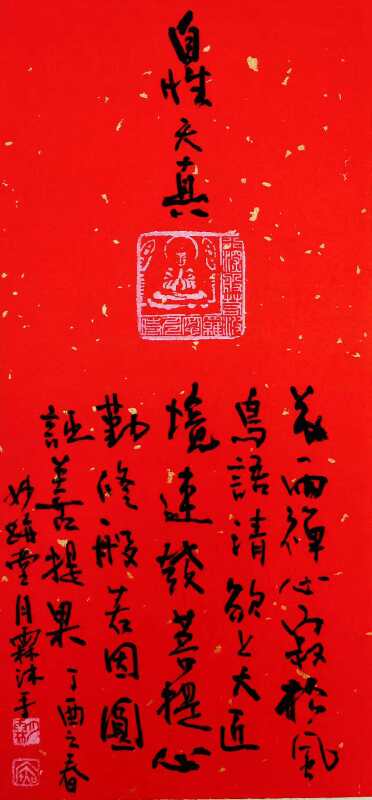 自性天真
花雨禪心寂松風
鳥語清欲上大匠
境速發菩提心
勤修般若因圓
証菩提果丁酉之春
妙堂月霖沐手